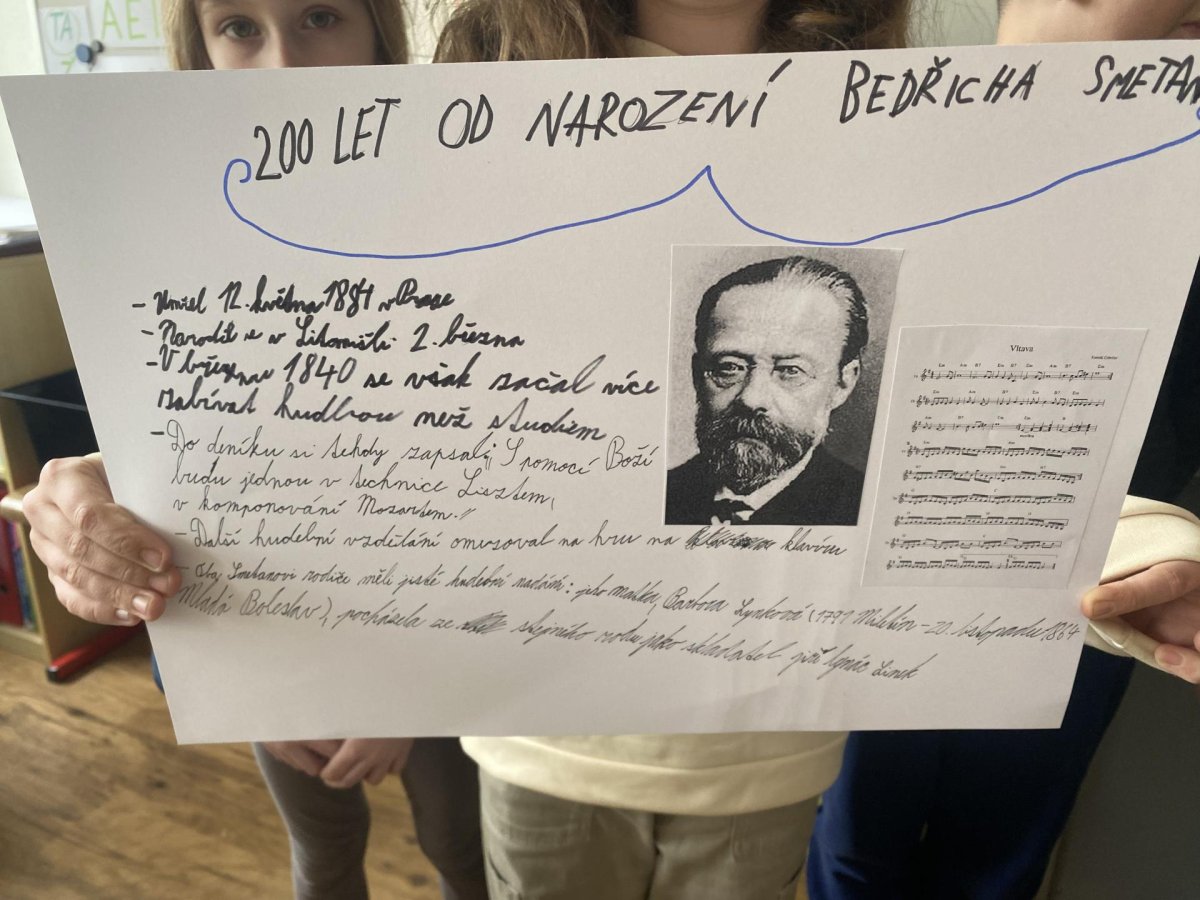 TA AEI
200 LET OD NAROZENÍ BEDŘICHA SMETAN
- Umřel 12. května 1884 v Praze
- Narodil se v Litomišli 2. března
- V březnu 1840 se však začal více
zabívat hudbou než studiem
- Do deníku si tehdy zapsal: „S pomocí Boží
budu jednou v technice Lisztem,
v komponování Mozartem."
- Další hudební vzdělání omezoval na hru na klavíru
- Oba Smetanovi rodiče měli jisté hudební nadání: jeho matka, Barbora Lynková (1791 Miletín - 20. listopadu 1864
Mladá Boleslav), pocházela ze stejného rodu jako skladatel jiří Ignác Linek
Vltava
Em Am B7 Em Em Am B7 Em